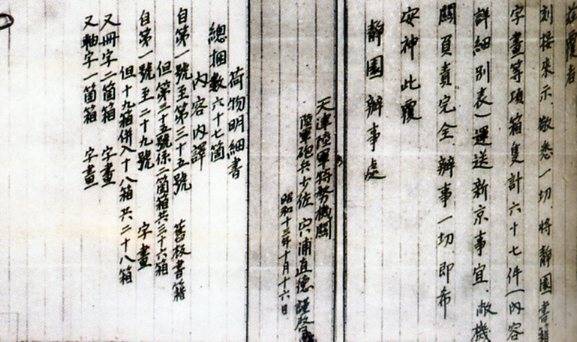 敬覆者
刻接來示敬悉一切將靜園書籍
字畫等項箱隻計六十七件(內容
詳細別表)運送新京事宜敝機
關負責完全辦事一切即希
安神此覆
靜園辦事處
天津陸軍特務機關
陸軍砲兵少佐 宍浦直德謹啓
昭和十二年十月十六日
荷物明細書
總捆數六十七箇
內容內譯
自第一號至第三十五號 舊板書籍
但第二十五號係二箇箱共三十六箱
自第一號至二十九號 字畫
但十九箱併入十八箱共二十八箱
又冊字二箇箱 字畫
又軸字一箇箱 字畫